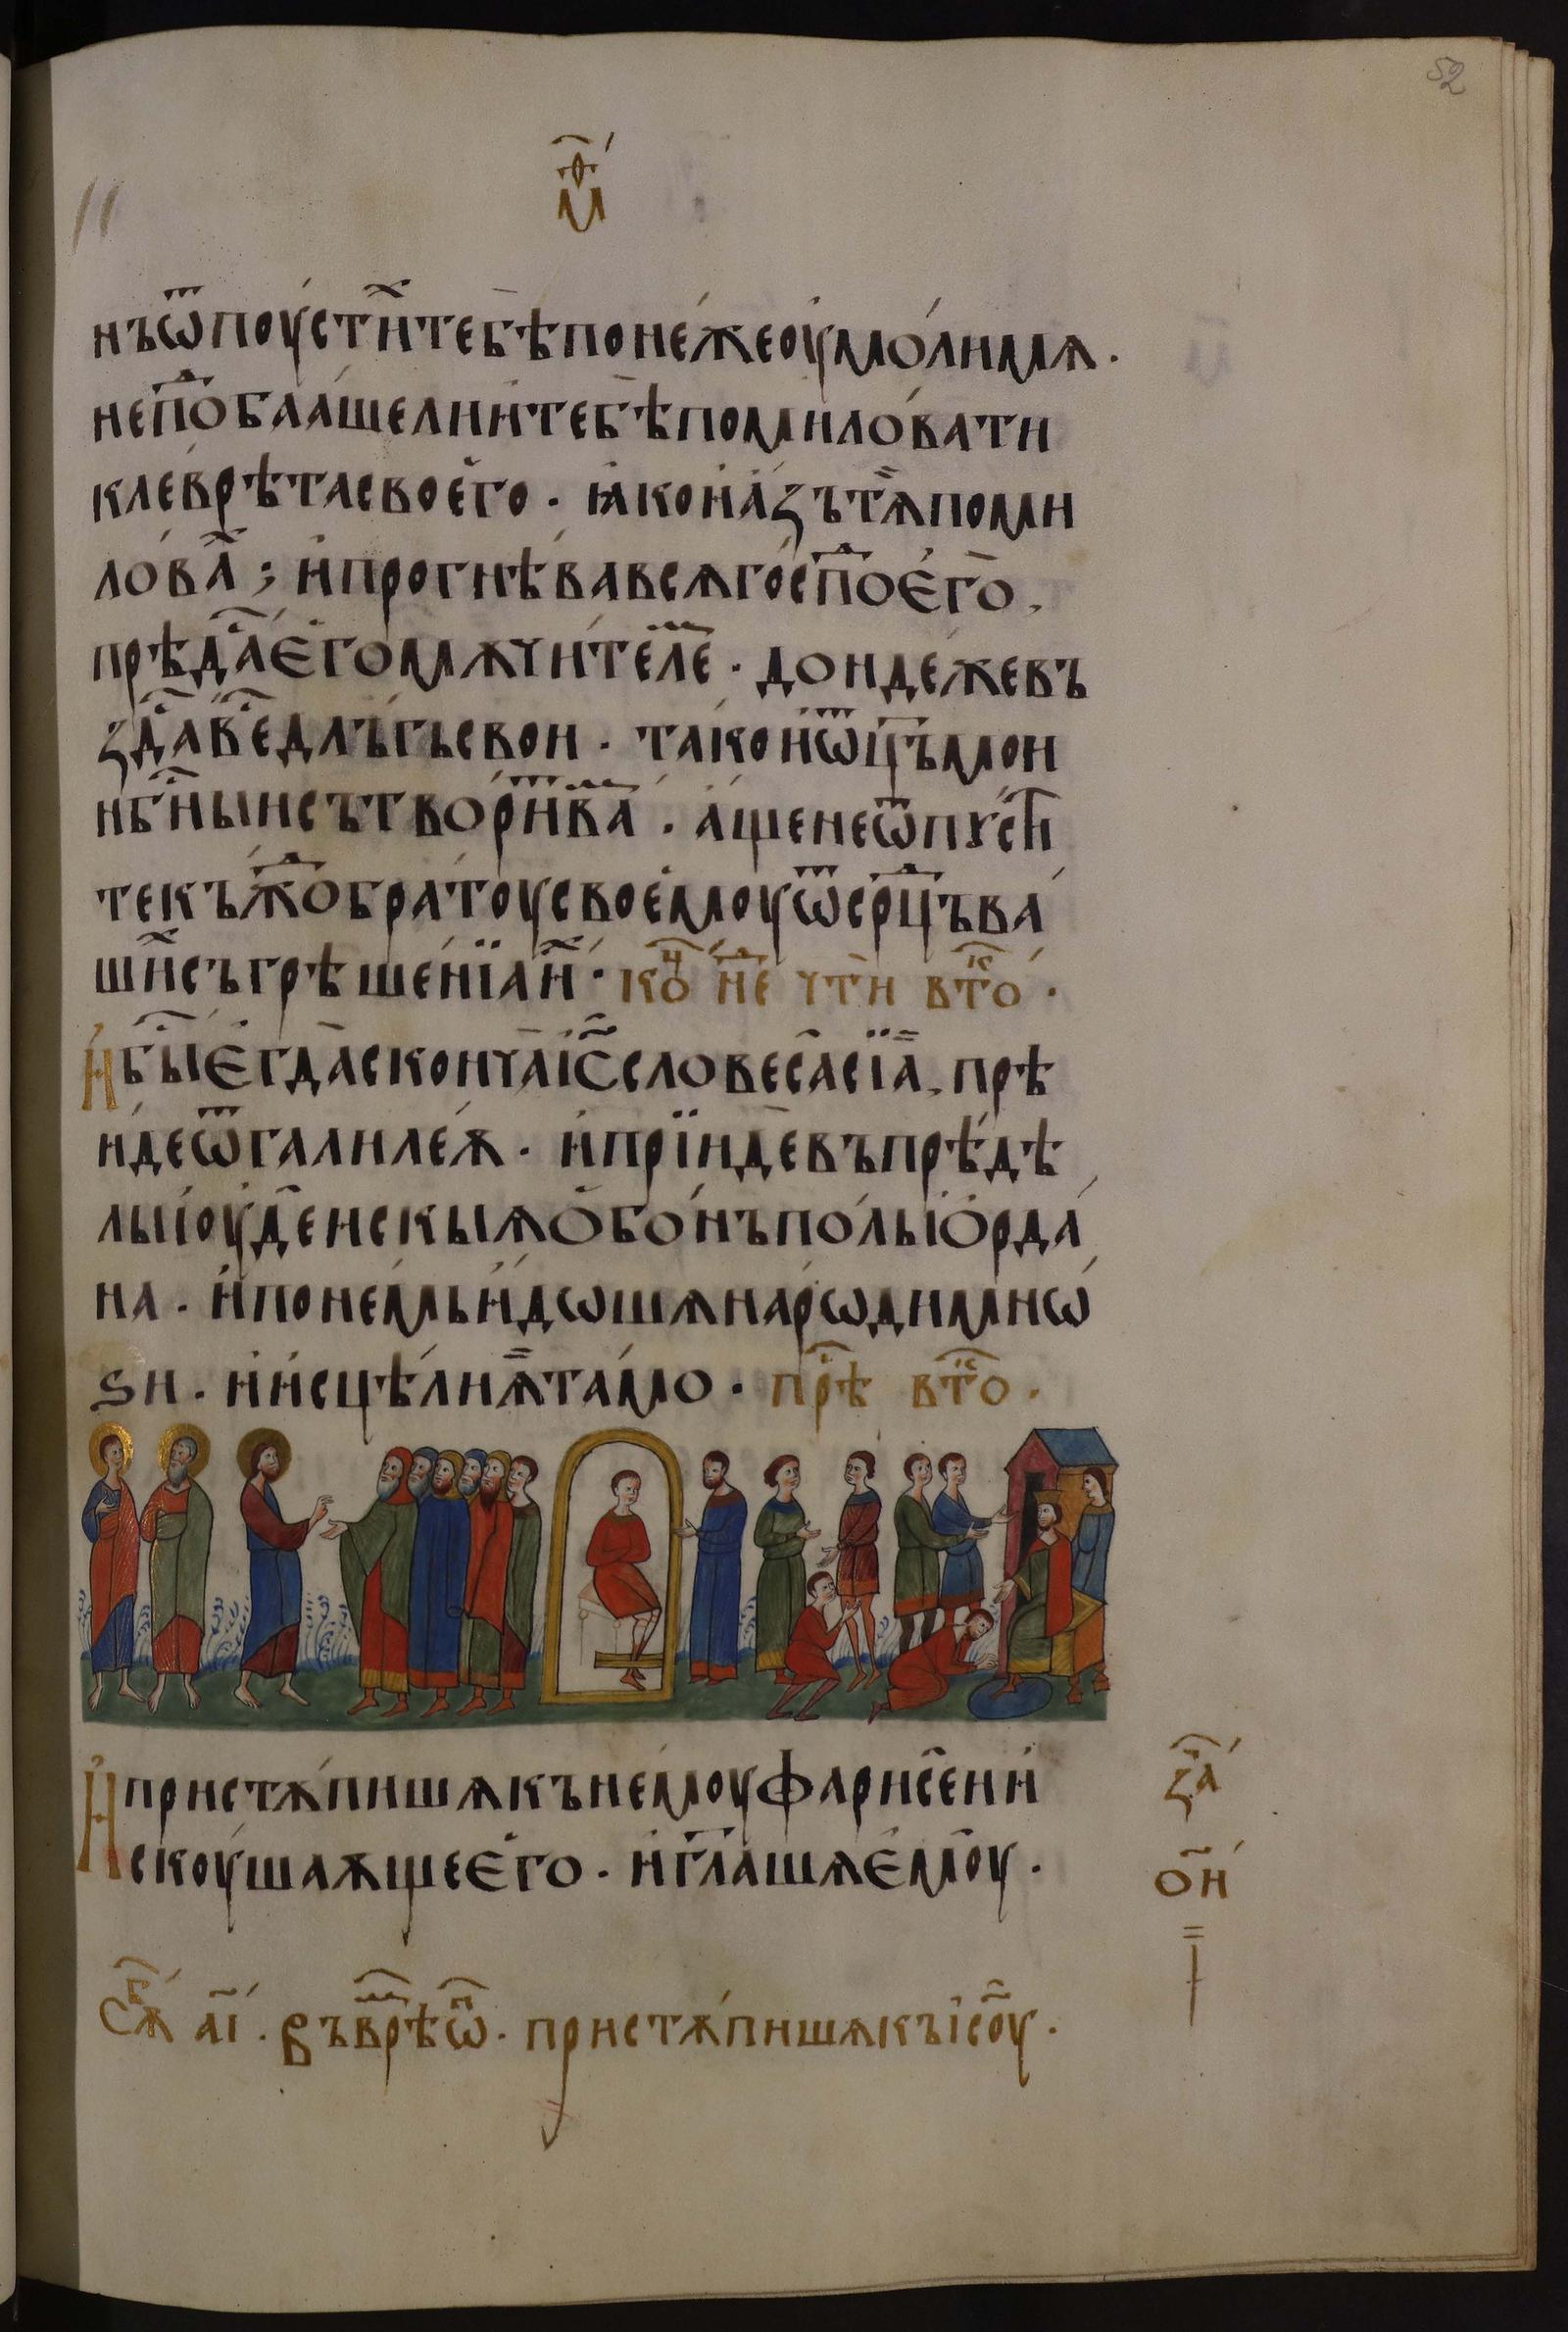 52
мⷴ҇
нъѿпоустих҇тебѣпонежеоумолимѧ·
непоⷣбаашелиитебѣпомиловати
клеврѣтасвоего· ꙗкоиазътѧпоми
ловаⷯ; ипрогнѣвавсѧгоспоⷣего,
прѣдаⷭ҇егомѫчителеⷨ· дондежевъ
здаⷭ҇веⷭ҇длъгьсвои· такоиѿц҃ъмои
нбⷭ҇ныисътвориⷮваⷨ· ащенеѿпꙋсти
текъжⷣобратоусвоемоуѿсрⷣцъва
шиⷯсъгрѣшенїаиⷯ· коⷰ҇ неⷣ чт҃и втоⷦ҇·
Ибыⷭ҇егдасконча і҃ссловесасїа, прѣ
идеѿгалилеѫ· ипрїидевъпрѣдѣ
лыіоуденскыѧобонъпольіорда
на· ипонемьидошѧнарѡдимнѡ
ѕи· иисцѣлиѧтамо· прѣⷭ҇ втоⷦ҇·
Ипристѫпишѧкънемоуфарисеии
скоушаѫщеего· иг҃лашѧемоу·
заⷱ҇
о҃и
сѫⷠ аі· Въврѣⷨѡⷩ· пристѫпишѧкъіс҃оу·